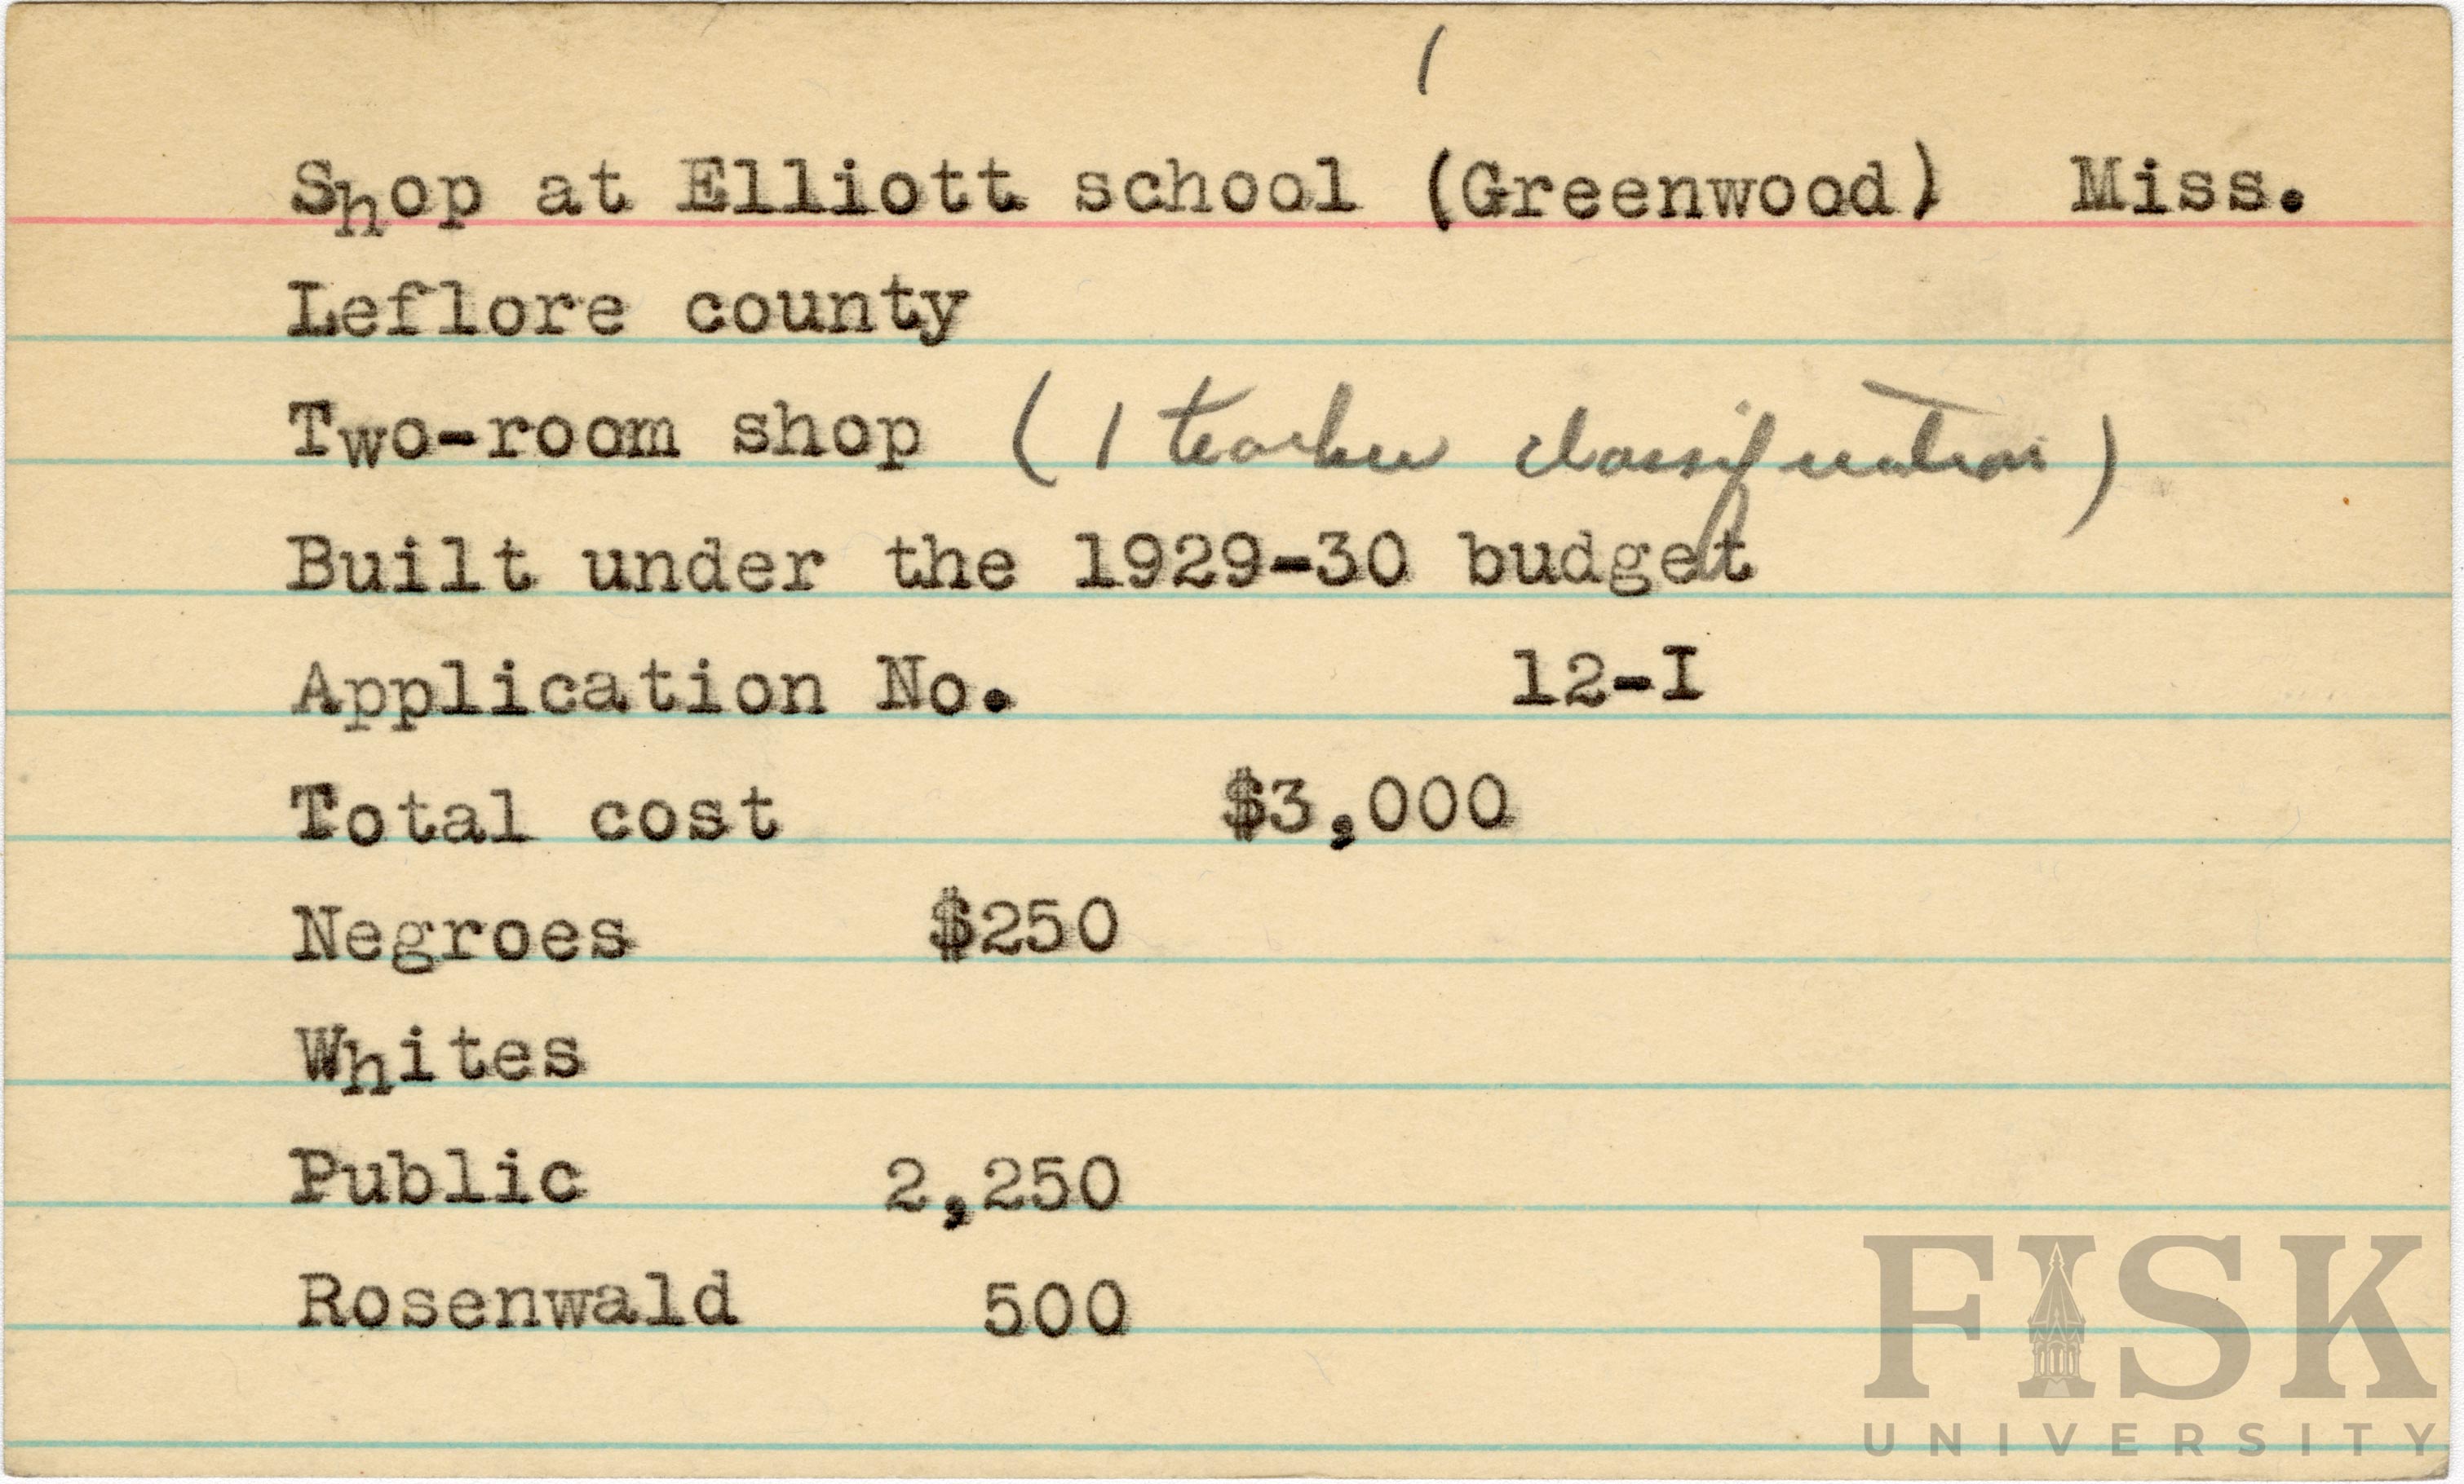 /
Shop at Elliott school (Greenwood) Miss.
Leflore county
Two-room shop (1 teacher classification)
Built under the 1929-30 budget
Application No. 12-I
Total cost $3,000
Negroes $250
Whites
Public 2,250
Rosenwald 500
FISK
UNIVERSITY